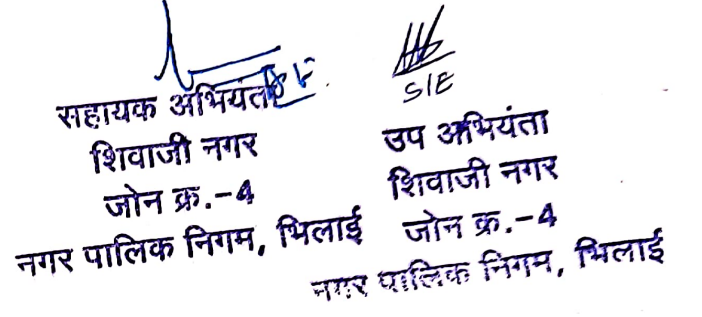 सहायक अभियंता
शिवाजी नगर
जोन क्र.-4
नगर पालिक निगम, भिलाई
S/E
उप अभियंता
शिवाजी नगर
जोन क्र.-4
नगर पालिक निगम, भिलाई